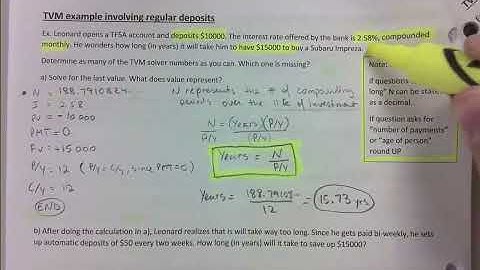 TVM example involving regular deposits
Ex. Leonard opens a TFSA account and deposits $10000. The interest rate offered by the bank is 2.58%, compounded
monthly. He wonders how long (in years) it will take him to have $15000 to buy a Subaru Impreza.
Determine as many of the TVM solver numbers as you can. Which one is missing?
Note:
a) Solve for the last value. What does value represent?
If questions
long" N can be stat
as a decimal.
If question asks for
"number of payments"
or "age of person"
round UP
N = 188.7910884
I = 2.58
PV = -10000
PMT = 0
FV = +15000
P/Y = 12 (P/Y = C/Y, since PMT=0)
C/Y = 12
END
N represents the # of compounding
periods over the life of investment
N = (Years)(P/Y)
P/Y (P/Y)
Years = N
P/Y
Years = 188.79108 = 15.73 yrs
12
b) After doing the calculation in a), Leonard realizes that is will take way too long. Since he gets paid bi-weekly, he sets
up automatic deposits of $50 every two weeks. How long (in years) will it take to save up $15000?